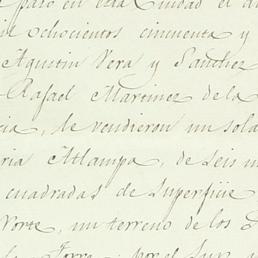 paso en esta Ciudad el a
ochocientos cincuenta y
Agustin Vera y Sanchez
Rafael Martinez de la
cia, se vendieron un sola
ria Atlampa, de seis m
cuadradas de superficie
Norte, un terreno de los
la Torre; por el Sur